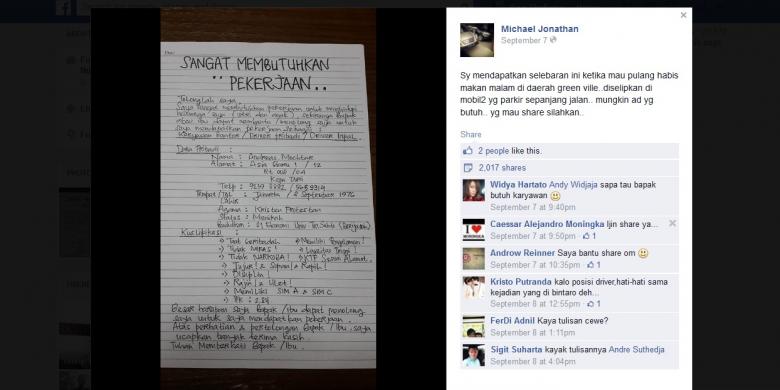 SANGAT MEMBUTUHKAN
" PEKERJAAN ..
Tolonglah saya.
Saya sangat membutuhkan pekerjaan untuk menghidupi
keluarga saya
saya mendapatkan pekerjaan sebagai :
Karyawan kantor / Driver Pribadi / Driver
Data Pribadi :
Nama : Andreas
Alamat :
Rt
Telp :
Tempat/Tgl : Jakarta, 2 September 1976
Lahir
Agama : Kristen Protestan
Status : Menikah
Pendidikan : S1 Ekonomi
Kualifikasi :
→ Tidak
→ Tidak NARKOBA! → KTP Sesuai Alamat.
→ Jujur! & Sopan! & Rapih!
→ Disiplin!
→ Rajin! & Ulet!
→ Memiliki SIM A & SIM C
→ IPK :
Besar harapan saya Bapak / Ibu dapat menolong
saya untuk saya mendapatkan pekerjaan.
Atas perhatian & pertolongan Bapak / Ibu saya
ucapkan banyak terima kasih.
Tuhan Memberkati Bapak / Ibu.
Michael Jonathan
September 7
Sy mendapatkan selebaran ini ketika mau pulang habis
makan malam di daerah green ville. diselipkan di
mobil2 yg parkir sepanjang jalan.. mungkin ad yg
butuh.. yg mau share silahkan..
Share
2 people like this.
2,017 shares
Widya Hartato Andy Widjaja sapa tau bapak
butuh karyawan
September 7 at 9:40pm
I ♥ MONINGKA
Caessar Alejandro Moningka Ijin share ya...
September 7 at 9:50pm · 1
Androw Reinner Saya bantu share om
September 7 at 10:35pm · 1
Kristo Putranda kalo posisi driver,hati-hati sama
kejadian yang di bintaro deh...
September 8 at 12:55pm · 1
FerDi Adnil Kaya tulisan cewe?
September 8 at 1:11pm
Sigit Suharta kayak tulisannya Andre Suthedja
September 8 at 4:04pm